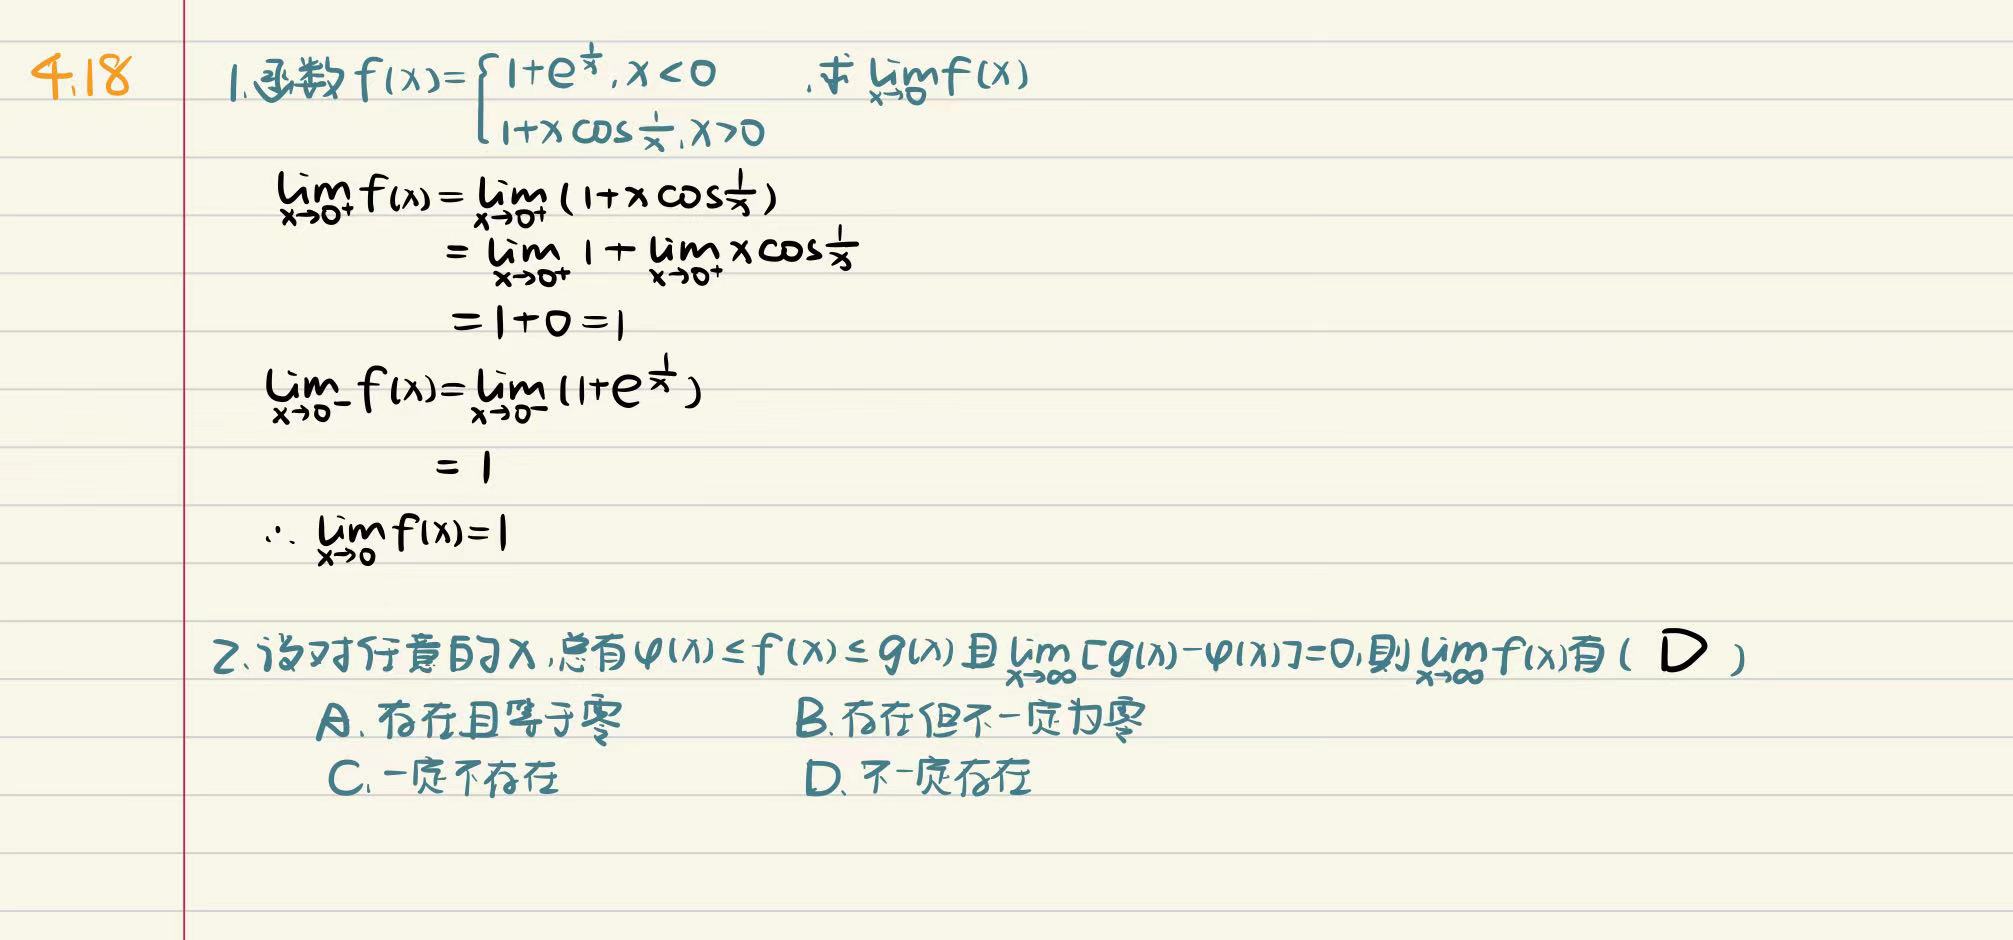 4.18
1.函数 f(x)={1+e^{1/x}, x<0 ,求 lim_{x→0} f(x)
1+x cos 1/x, x>0
lim_{x→0⁺} f(x) = lim_{x→0⁺} (1+x cos 1/x)
= lim_{x→0⁺} 1 + lim_{x→0⁺} x cos 1/x
=1+0=1
lim_{x→0⁻} f(x) = lim_{x→0⁻} (1+e^{1/x})
= 1
∴ lim_{x→0} f(x)=1
2.设对任意的x,总有φ(x)≤f(x)≤g(x)且 lim_{x→∞} [g(x)-φ(x)]=0,则 lim_{x→∞} f(x)有( D )
A.存在且等于零 B.存在但不一定为零
C.一定不存在 D.不一定存在